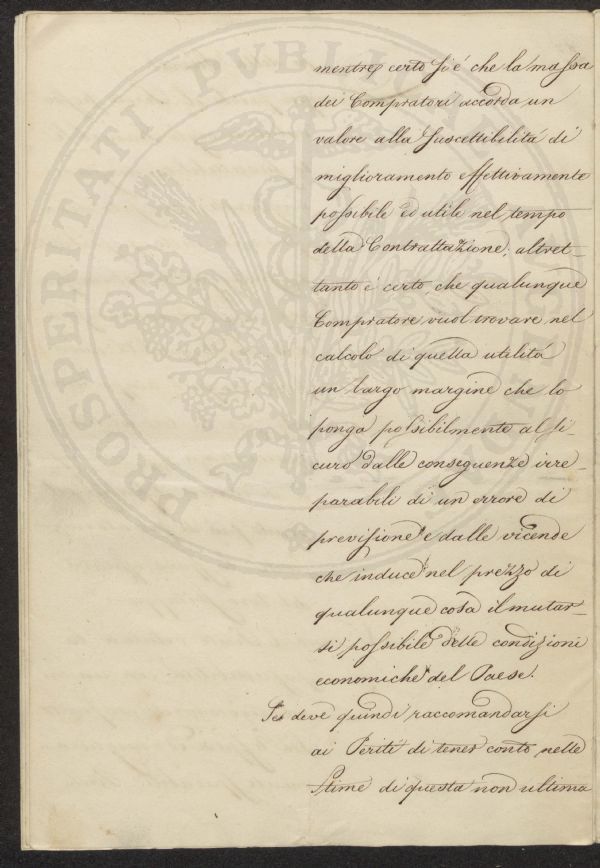 mentre certo si é che la massa
dei Compratori accorda un
valore alla suscettibilitá di
miglioramento effettivamente
possibile ed utile nel tempo
della Contrattazione, altret-
tanto é certo, che qualunque
Compratore vuol trovare, nel
calcolo di quella utilitá
un largo margine che lo
ponga possibilmente al si-
curo dalle conseguenze irre-
parabili di un errore di
previsione e dalle vicende
che induce nel prezzo di
qualunque cosa il mutar-
si possibile delle condizioni
economiche del Paese.
deve quindi raccomandarsi
ai Periti di tener conto nelle
Stime di questa non ultima
PROSPERITATI PVBLI